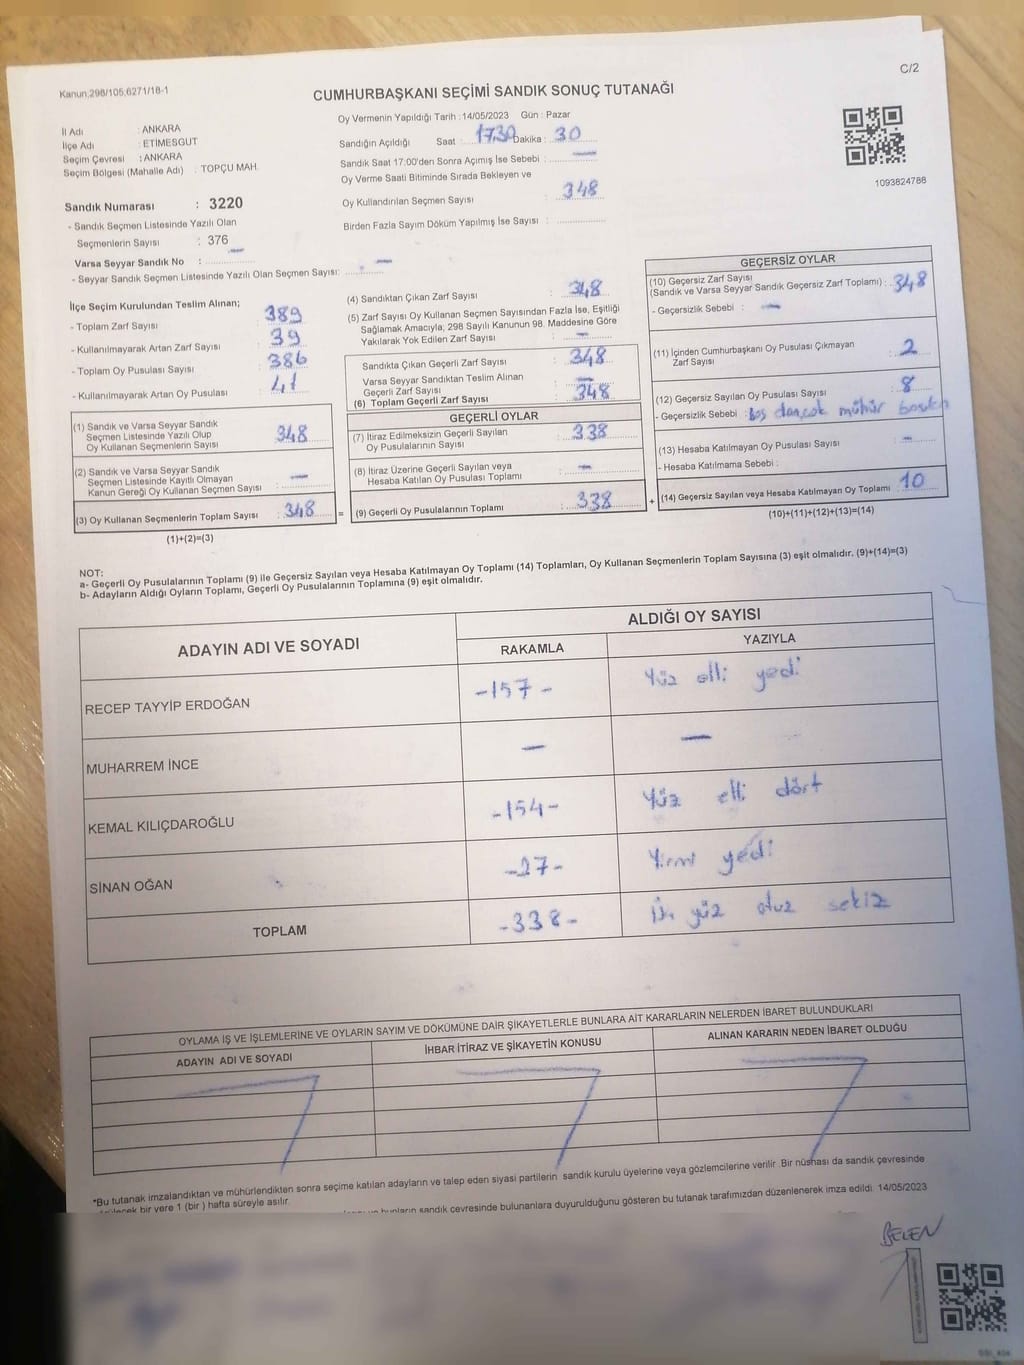 C/2
Kanun;298/105,6271/18-1
CUMHURBAŞKANI SEÇİMİ SANDIK SONUÇ TUTANAĞI
İl Adı : ANKARA
İlçe Adı : ETİMESGUT
Seçim Çevresi : ANKARA
Seçim Bölgesi (Mahalle Adı) : TOPÇU MAH.
Sandık Numarası : 3220
- Sandık Seçmen Listesinde Yazılı Olan
Seçmenlerin Sayısı : 376
Varsa Seyyar Sandık No : —
- Seyyar Sandık Seçmen Listesinde Yazılı Olan Seçmen Sayısı: —
Oy Vermenin Yapıldığı Tarih : 14/05/2023 Gün : Pazar
Sandığın Açıldığı Saat : 17.30 Dakika : 30
Sandık Saat 17:00'den Sonra Açımış İse Sebebi : —
Oy Verme Saati Bitiminde Sırada Bekleyen ve
Oy Kullandırılan Seçmen Sayısı : 348
Birden Fazla Sayım Döküm Yapılmış İse Sayısı :
1093824788
İlçe Seçim Kurulundan Teslim Alınan;
- Toplam Zarf Sayısı : 389
- Kullanılmayarak Artan Zarf Sayısı : 39
- Toplam Oy Pusulası Sayısı : 386
- Kullanılmayarak Artan Oy Pusulası : 41
(1) Sandık ve Varsa Seyyar Sandık
Seçmen Listesinde Yazılı Olup
Oy Kullanan Seçmenlerin Sayısı : 348
(2) Sandık ve Varsa Seyyar Sandık
Seçmen Listesinde Kayıtlı Olmayan
Kanun Gereği Oy Kullanan Seçmen Sayısı : —
(3) Oy Kullanan Seçmenlerin Toplam Sayısı : 348 =
(1)+(2)=(3)
(4) Sandıktan Çıkan Zarf Sayısı : 348
(5) Zarf Sayısı Oy Kullanan Seçmen Sayısından Fazla İse, Eşitliği
Sağlamak Amacıyla; 298 Sayılı Kanunun 98. Maddesine Göre
Yakılarak Yok Edilen Zarf Sayısı : —
Sandıkta Çıkan Geçerli Zarf Sayısı : 348
Varsa Seyyar Sandıktan Teslim Alınan
Geçerli Zarf Sayısı : —
(6) Toplam Geçerli Zarf Sayısı : 348
GEÇERLİ OYLAR
(7) İtiraz Edilmeksizin Geçerli Sayılan
Oy Pusulalarının Sayısı : 338
(8) İtiraz Üzerine Geçerli Sayılan veya
Hesaba Katılan Oy Pusulası Toplamı : —
(9) Geçerli Oy Pusulalarının Toplamı : 338 +
GEÇERSİZ OYLAR
(10) Geçersiz Zarf Sayısı
(Sandık ve Varsa Seyyar Sandık Geçersiz Zarf Toplamı) : 348
- Geçersizlik Sebebi : —
(11) İçinden Cumhurbaşkanı Oy Pusulası Çıkmayan
Zarf Sayısı : 2
(12) Geçersiz Sayılan Oy Pusulası Sayısı : 8
- Geçersizlik Sebebi : mühür
(13) Hesaba Katılmayan Oy Pusulası Sayısı : —
- Hesaba Katılmama Sebebi :
(14) Geçersiz Sayılan veya Hesaba Katılmayan Oy Toplamı : 10
(10)+(11)+(12)+(13)=(14)
NOT:
a- Geçerli Oy Pusulalarının Toplamı (9) ile Geçersiz Sayılan veya Hesaba Katılmayan Oy Toplamı (14) Toplamları, Oy Kullanan Seçmenlerin Toplam Sayısına (3) eşit olmalıdır. (9)+(14)=(3)
b- Adayların Aldığı Oyların Toplamı, Geçerli Oy Pusulalarının Toplamına (9) eşit olmalıdır.
ADAYIN ADI VE SOYADI
ALDIĞI OY SAYISI
RAKAMLA YAZIYLA
RECEP TAYYİP ERDOĞAN -157- Yüz elli yedi
MUHARREM İNCE — —
KEMAL KILIÇDAROĞLU -154- Yüz elli dört
SİNAN OĞAN -27- Yirmi yedi
TOPLAM -338- Üç yüz otuz sekiz
OYLAMA İŞ VE İŞLEMLERİNE VE OYLARIN SAYIM VE DÖKÜMÜNE DAİR ŞİKAYETLERLE BUNLARA AİT KARARLARIN NELERDEN İBARET BULUNDUKLARI
ADAYIN ADI VE SOYADI İHBAR İTİRAZ VE ŞİKAYETİN KONUSU ALINAN KARARIN NEDEN İBARET OLDUĞU
*Bu tutanak imzalandıktan ve mühürlendikten sonra seçime katılan adayların ve talep eden siyasi partilerin sandık kurulu üyelerine veya gözlemcilerine verilir. Bir nüshası da sandık çevresinde
bir yere 1 (bir ) hafta süreyle asılır.
bunların sandık çevresinde bulunanlara duyurulduğunu gösteren bu tutanak tarafımızdan düzenlenerek imza edildi. 14/05/2023
BELEN